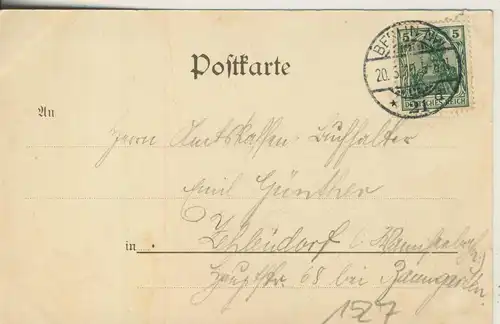 Postkarte
BERLIN
5 5
20.3.
DEUTSCHES REICH
21
An
Herrn Amtskassen-Buchhalter
Emil Günther
in Zehlendorf
Hauptstr 68 bei
1527